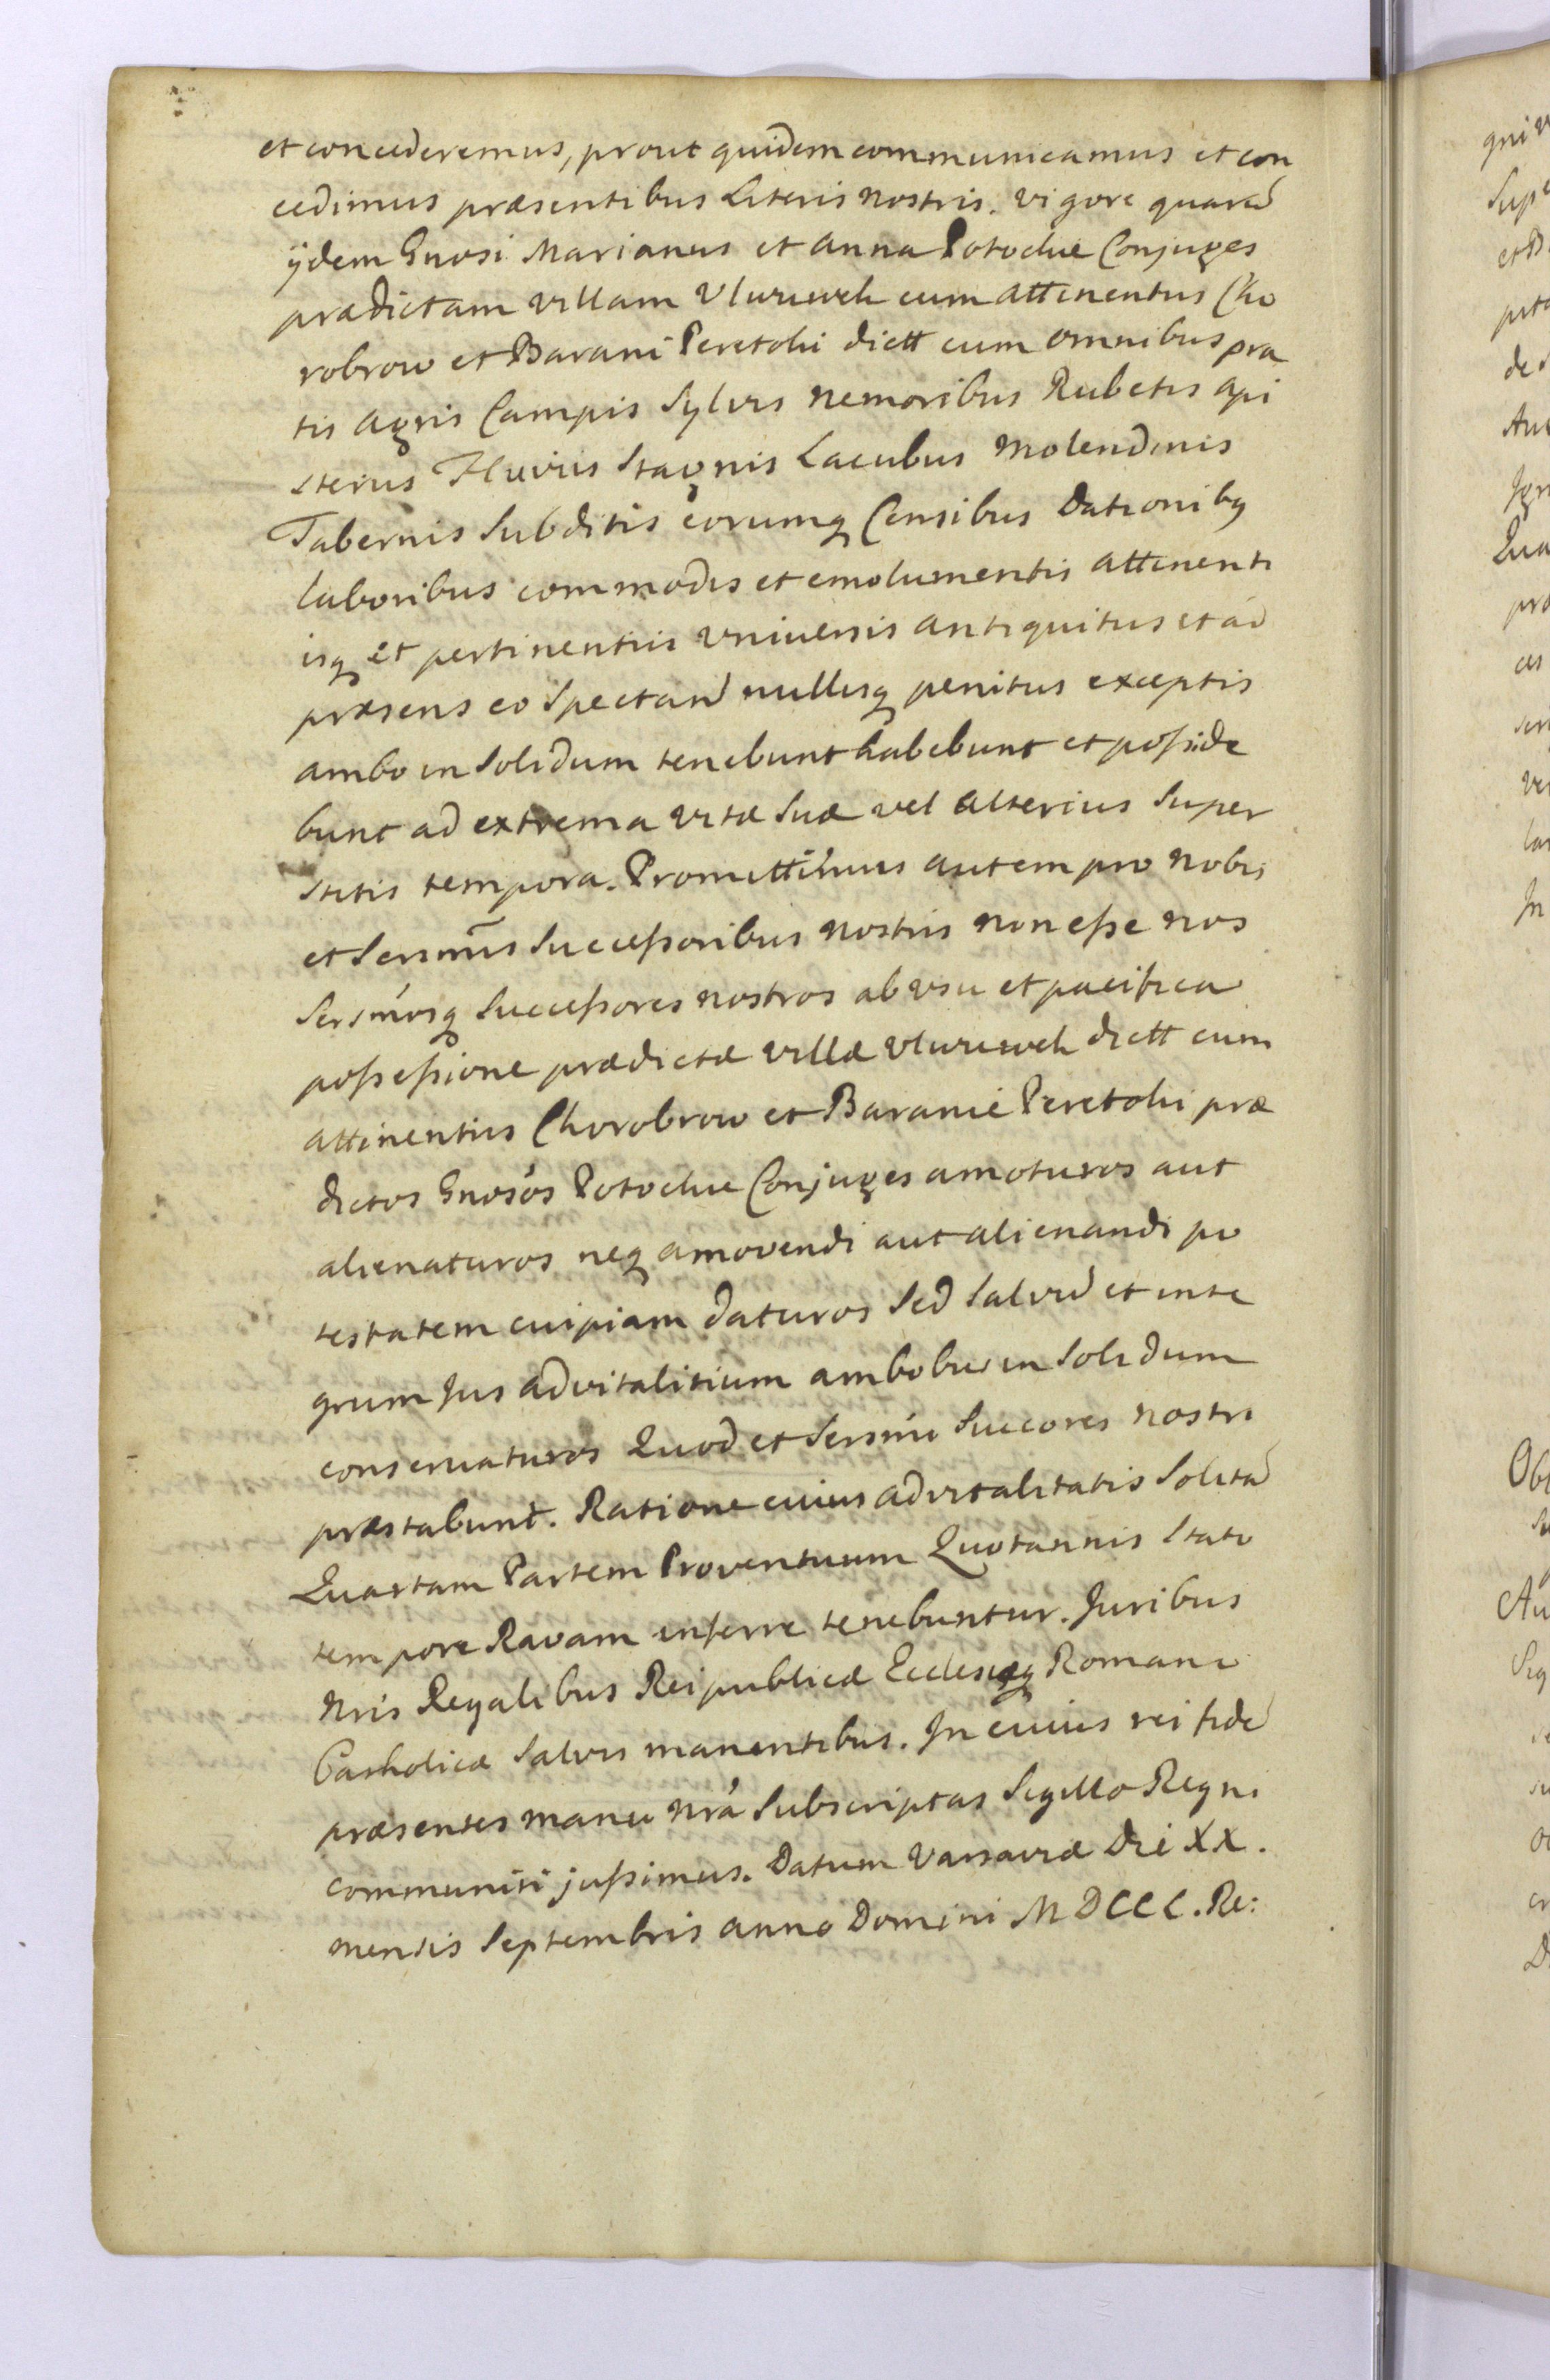 et concederemus, prout quidem communicamus et con
cedimus præsentibus Literis nostris. Vigore quarũ
ijdem Gnosi Marianus et Anna Potockie Conjuges
prædictam Villam Vluruwek cum attinentiis Cho
robrow et Barani Peretoki dictt cum omnibus pra
tis Agris Campis Sylvis Nemoribus Rubetis Api
steriis Fluviis Stagnis Lacubus Molendinis
Tabernis Subditis eorumq Censibus Dationibq
laboribus commodis et emolumentis Attinenti
isq et pertinentiis Vniuersis antiquitus et ad
præsens eo spectand nullisq penitus exceptis
ambo in Solidum tenebunt habebunt et posside
bunt ad extrema vitæ suæ vel alterius super
stitis tempora. Promittimus autem pro nobis
et Sersmis Successoribus nostris non esse nos
Sersmosq Successores nostros ab usu et pacifica
possessione prædictæ Villæ Vluruwek dictt cum
attinentiis Chorobrow et Baranie Peretoki præ
dictos Gnosos Potockie Conjuges amoturos aut
alienaturos neq amovendi aut alienandi po
testatem cuipiam daturos Sed salvũ et inte
grum Jus advitalitium ambobus in Solidum
conseruaturos Quod et Sersmi Succores nostri
præstabunt. Ratione cuius advitalitatis Solitã
Quartam Partem Proventuum Quotannis Stato
tempore Ravam inferre tenebuntur. Juribus
Nris Regalibus Reipublicæ Ecclesiæq Romanæ
Catholicæ Salvis manentibus. In cuius rei fidẽ
præsentes manu Nrã Subscriptas Sigillo Regni
communiri jussimus. Datum Varsaviæ Die XX.
mensis Septembris Anno Domini M DCCL. Re: